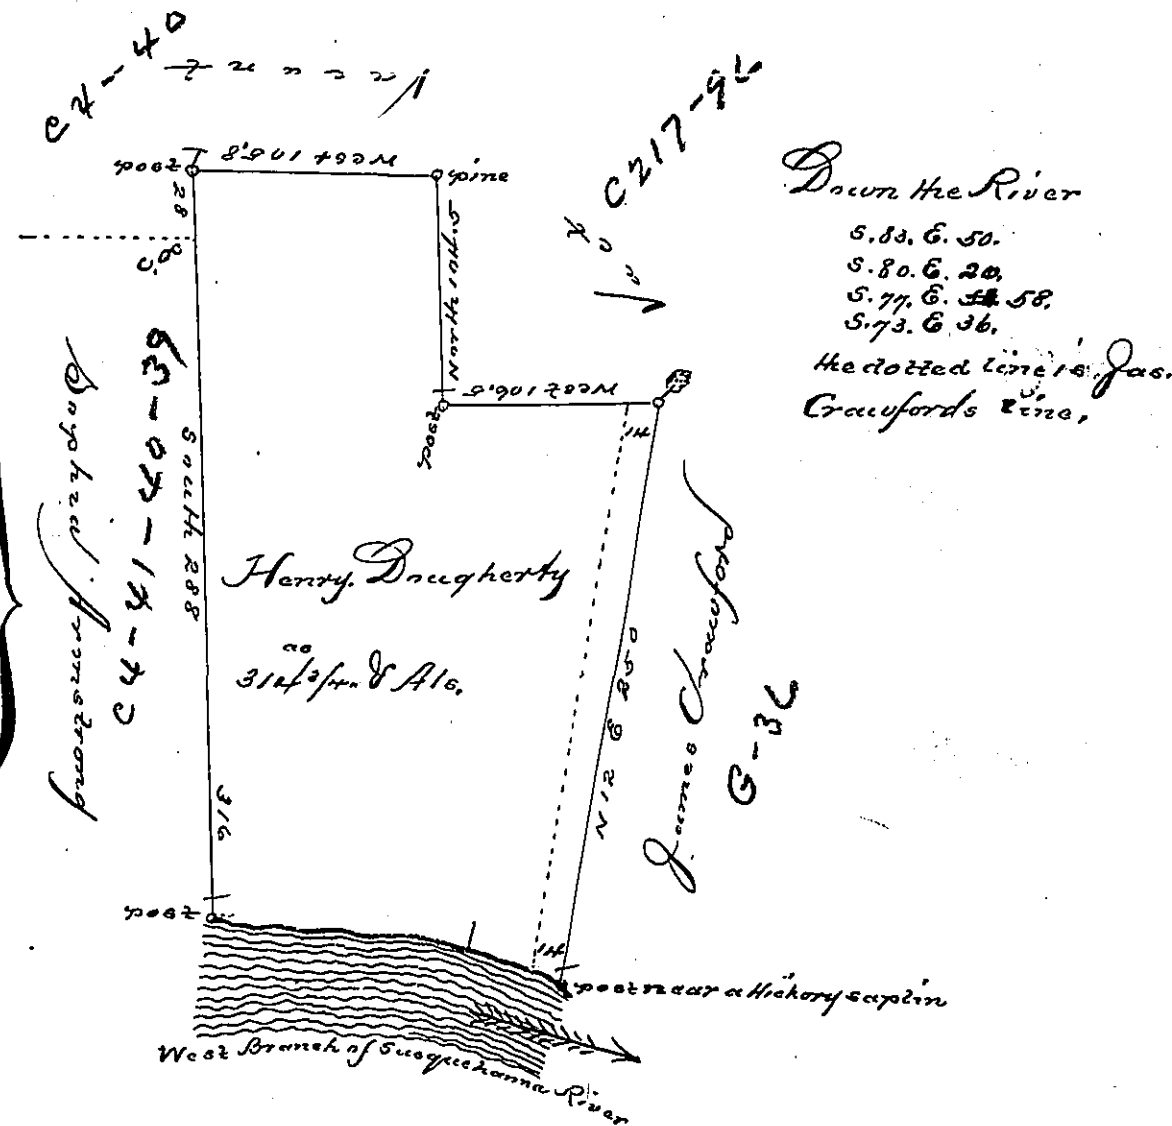 C4-40
Vacant
C217-92
post
West 105.8
pine
28
20.0
North
post
West 106.5
14
Down the River
S. 83. E. 50.
S. 80. E. 20.
S. 77. E. 58.
S. 73. E 36.
the dotted line is Jas.
Crawfords line,
Sophia Armstrong
C4-41-40-39
South 288
Henry. Dougherty
316
N 12 E 250
James Crawford
G-36
14
post
post near a Hickory saplin
West Branch of Susquehanna River